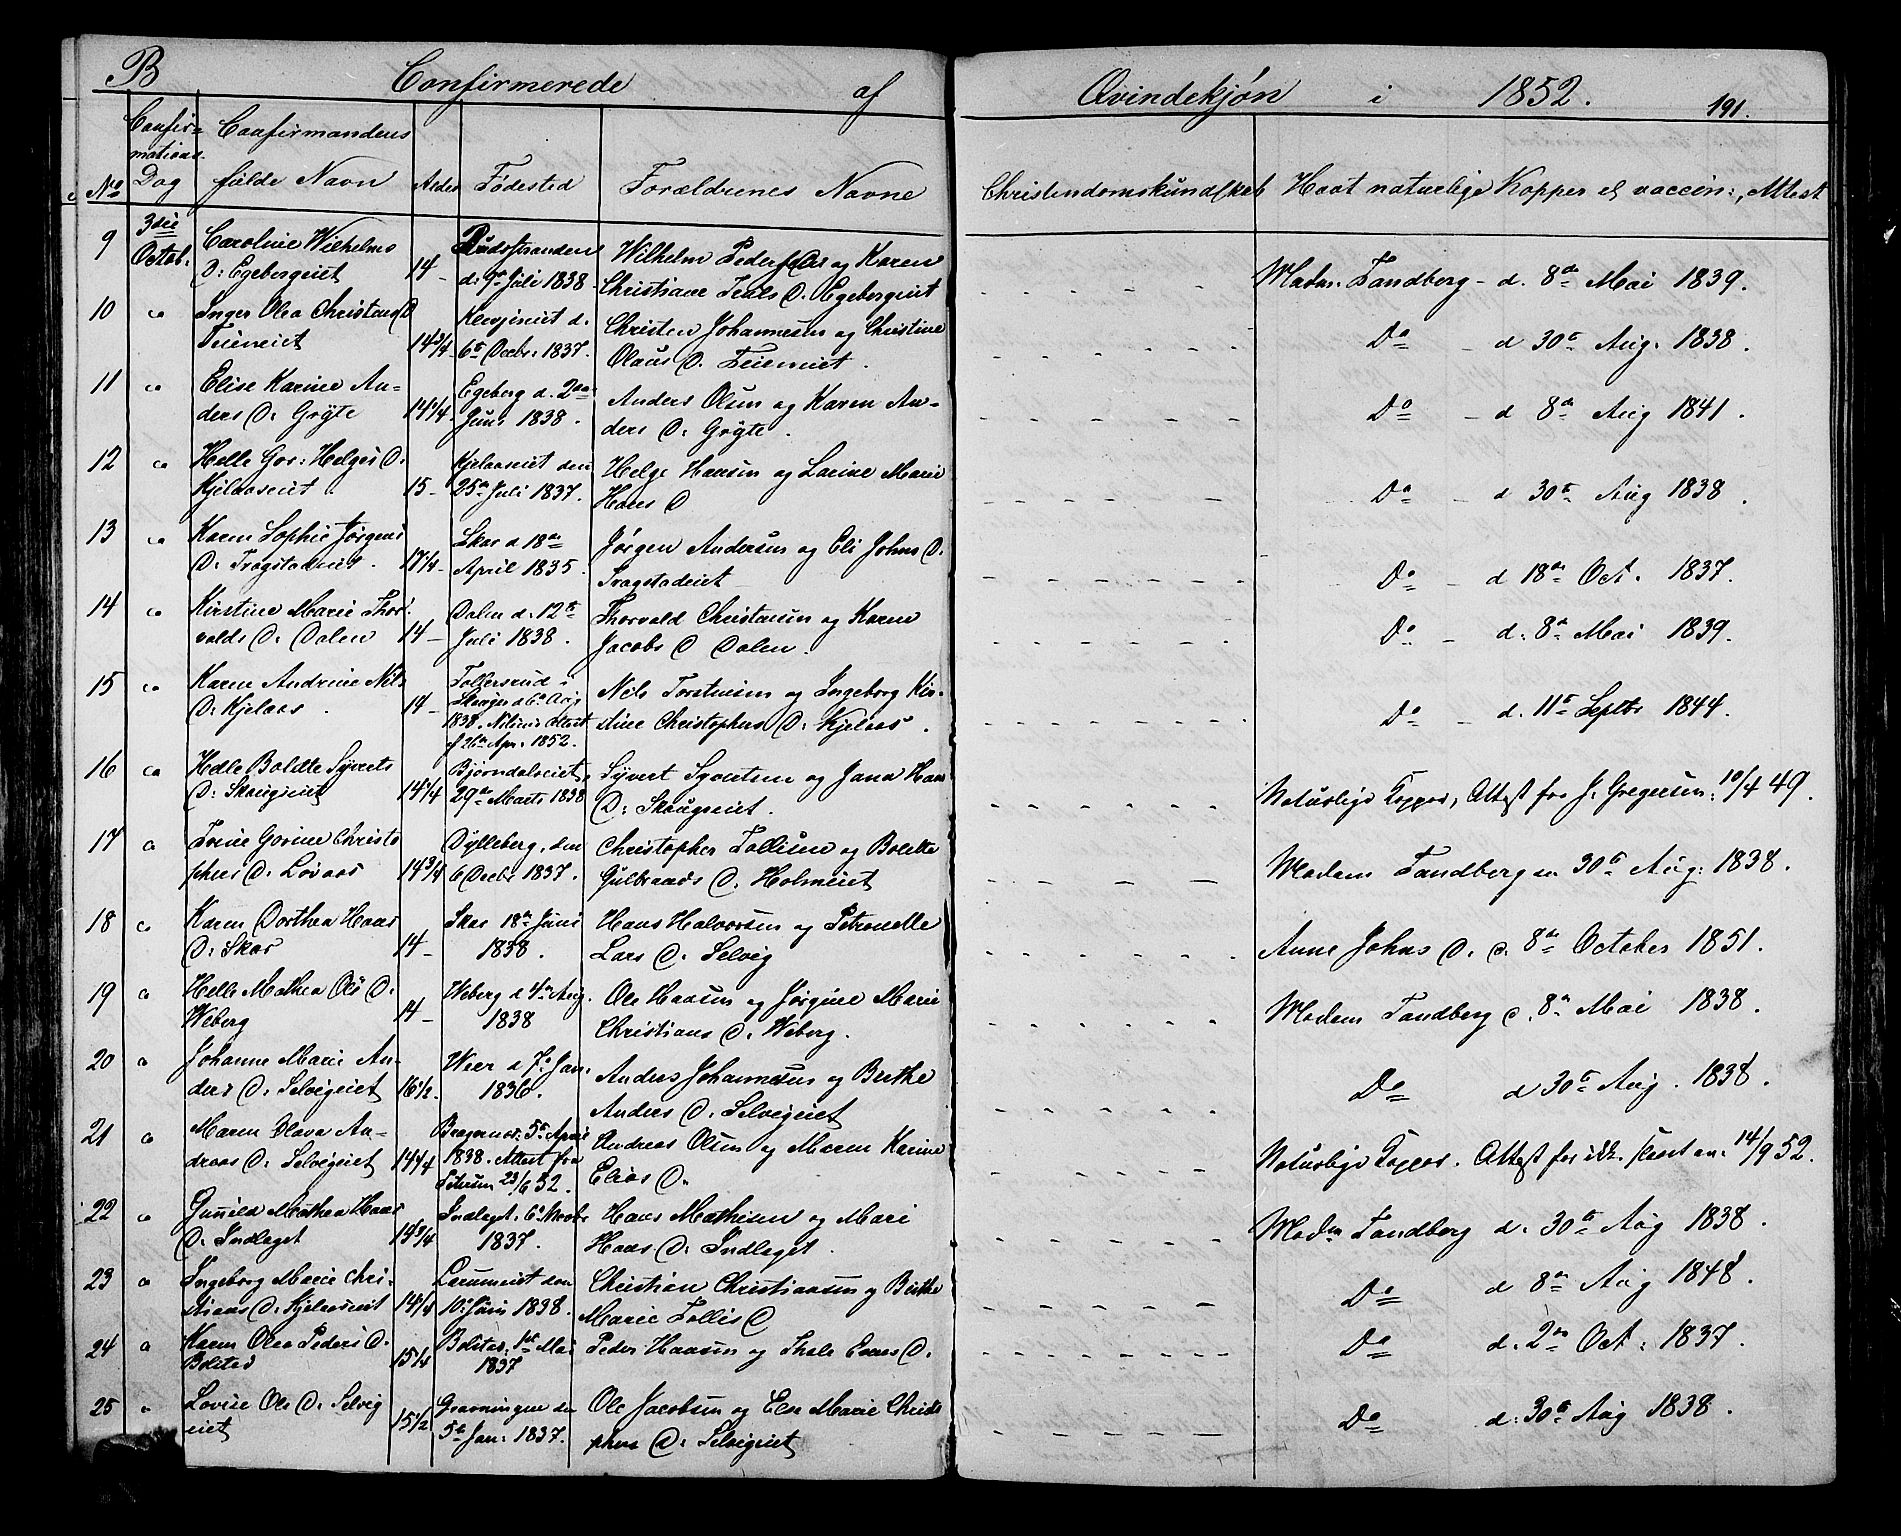 B Confirmerede af Qvindekjøn i 1852. 191.
No Confirmations Dag Confirmandens fulde Navn Alder Fødested Forældrenes Navne Christendomskundskab Havt naturlige Kopper el vaccin:, Attest
9 3die Octob. Caroline Wilhelms D: Egebergeiet 14 - d. 9de Juli 1838 Wilhelm Peders og Karen Christiane Egebergeiet Madm. Tandberg - d. 8de Mai 1839.
10 do Inger Olea Christens D 14 3/4 6te Decbr. 1837. Christen Johannesen og Christine Olaus D. Do - d 30te Aug. 1838.
11 do Elise Karine Anders D: Grøyte 14 1/4 Egeberg d. 2den Juni 1838. Anders Olsen og Karen Anders D: Grøyte. Do - d 8de Aug 1841.
12 do Helle Gor: Helges D: Kjelaaseiet 15 - Kjelaaseiet den 25de Juli 1837. Helge Hansen og Larine Marie Hans D Do - d 30te Aug 1838.
13 do Karen Sophie Jørgens D: Trogstadeiet. 17 1/4 - Skar d 18de April 1835. Jørgen Andersen og Eli Johns D. Trogstadeiet Do - d 18de Oct. 1837.
14 do Kirstine Marie Thorvalds D: Dalen 14 - Dalen d. 12te Juli 1838. Thorvald Christensen og Karen Jacobs D Dalen. Do - d. 8de Mai 1839.
15 do Karen Andrine Nils D: Kjelaas. 14 - Tollersrud i d 6te Aug 1838. Attest af 26de Apr. 1852. Nils Torstensen og Ingeborg Kirstine Christophers D: Kjelaas. Do - d. 11te Septbr 1844.
16 do Helle Bolette Syverts D: Skougeiet 14 1/4 Bjørndalseiet, 29de Marts 1838 Syvert Syvertsen og Jana Hans D: Skougeiet. Naturlige Kopper, Attest fra J. Gregersen 10/4 49.
17 do Trine Gorine Christophers D. Løvaas 14 3/4 Dylleberg, den 6 Decbr 1837. Christopher Tollisen og Bolette Gulbrands D. Holmeiet Madam Tandberg 30te Aug: 1838.
18 do Karen Dorthea Hans D: Skar 14 - Skar 18de Juni 1838. Hans Halvorsen og Petronelle Lars D. Selvig Anne Johns D. d. 8de October 1851.
19 do Helle Mathea Ols D. Weberg 14 - Weberg d 4de Aug. 1838 Ole Hansen og Jørgine Marie Christians D. Weberg. Madam Tandberg d. 8de Mai 1838.
20 do Johanne Marie Anders D. Selvigeiet 16 1/2. Weer d 7de Jan. 1836. Anders Johannesen og Berthe Anders D. Selvigeiet Do d 30te Aug. 1838.
21 do Maren Olava Andreas D. Selvigeiet 14 1/4 Bragernes: 5te April 1838. Attest fra 23/6 52. Andreas Olsen og Maren Karine Elias D. Naturlige Kopper. Attest 14/9 52.
22 do Gunild Mathea Hans D. Indlaget 14 3/4 Indlaget. 6te Novbr 1837. Hans Mathisen og Mari Hans D. Indlaget. Madm Tandberg d. 30te Aug 1838.
23 do Ingeborg Marie Christians D. Kjelaaseiet 14 1/4 den 10de Juni 1838. Christian Christiansen og Berthe Marie Tollis D Do d 8de Aug 1848.
24 do Karen Olea Peders D. Bolstad 15 1/4 Bolstad. 1ste Mai 1837 Peder Hansen og Thale Evens D. Do d. 2den Oct. 1837.
25 do Lovise Ols D. Selvigeiet 15 1/2 Gravningen den 5te Jan: 1837. Ole Jacobsen og Else Marie Christophers D. Selvigeiet Do d: 30te Aug 1838.